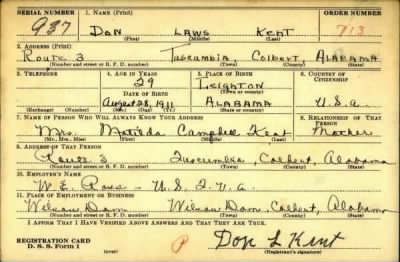 SERIAL NUMBER 1. NAME (Print) ORDER NUMBER
937 DON LAWS KENT 713
(First) (Middle) (Last)
2. ADDRESS (Print)
Route 3 Tuscumbia, Colbert, ALABAMA
(Number and street or R. F. D. number) (Town) (County) (State)
3. TELEPHONE 4. AGE IN YEARS 5. PLACE OF BIRTH 6. COUNTRY OF CITIZENSHIP
29 LEIGHTON
DATE OF BIRTH (Town or county)
August 28, 1911 ALABAMA U.S.A.
(Exchange) (Number) (Mo.) (Day) (Yr.) (State or country)
7. NAME OF PERSON WHO WILL ALWAYS KNOW YOUR ADDRESS 8. RELATIONSHIP OF THAT PERSON
Mrs. Matilda Campbell Kent Mother
(Mr., Mrs., Miss) (First) (Middle) (Last)
9. ADDRESS OF THAT PERSON
Route 3 Tuscumbia, Colbert, Alabama
(Number and street or R. F. D. number) (Town) (County) (State)
10. EMPLOYER'S NAME
W. E. - U.S. T.V.A.
11. PLACE OF EMPLOYMENT OR BUSINESS
Wilson Dam Wilson Dam, Colbert, Alabama
(Number and street or R. F. D. number) (Town) (County) (State)
I AFFIRM THAT I HAVE VERIFIED ABOVE ANSWERS AND THAT THEY ARE TRUE.
REGISTRATION CARD
D. S. S. Form 1 Don L Kent
(Registrant's signature)